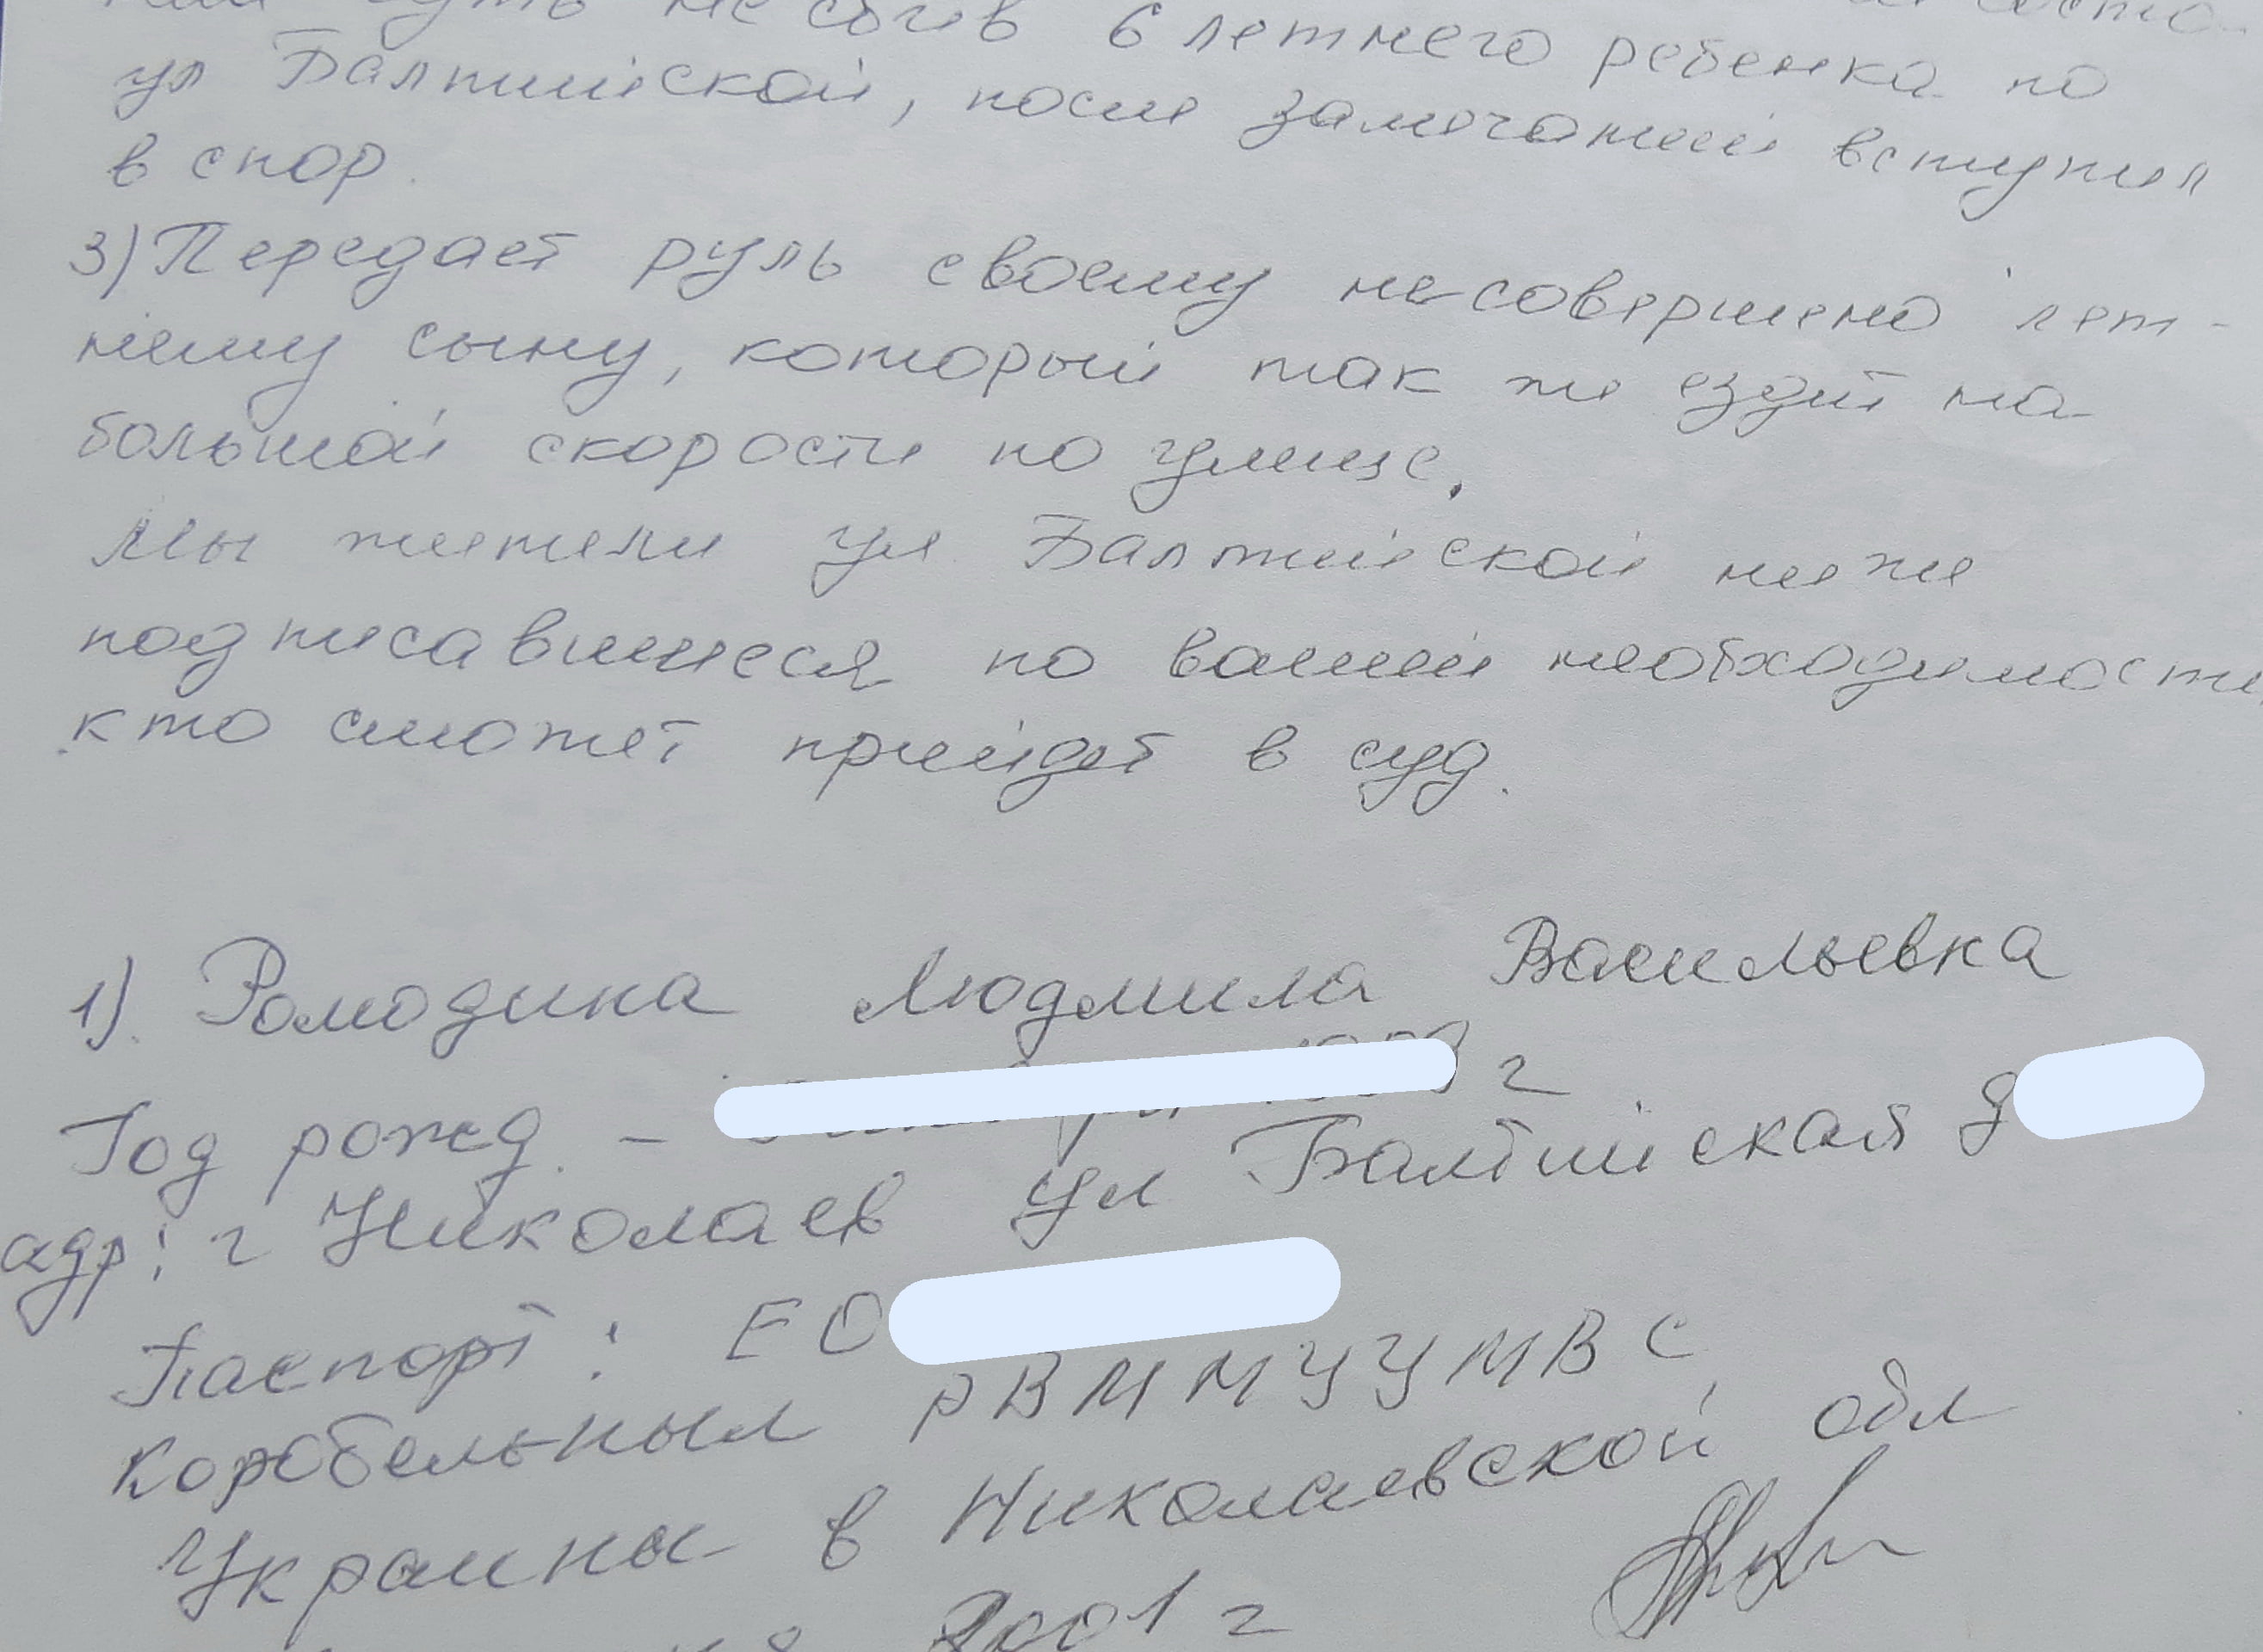 чуть не сбив 6 летнего ребенка по
ул Балтийской, после замечаний вступил
в спор.
3) Передает руль своему несовершено лет-
нему сыну, который так же ездит на
большой скорости по улице.
Мы жители ул. Балтийской ниже
подписавшиеся по вашей необходимости,
кто сможет прийдет в суд.
1). Ромодина Людмила Васильевна
Год рожд. - г
адр: г Николаев ул Балтийская д
Паспорт: ЕО
Коробельным РВ ММУ УМВС
Украины в Николаевской обл
2001 г